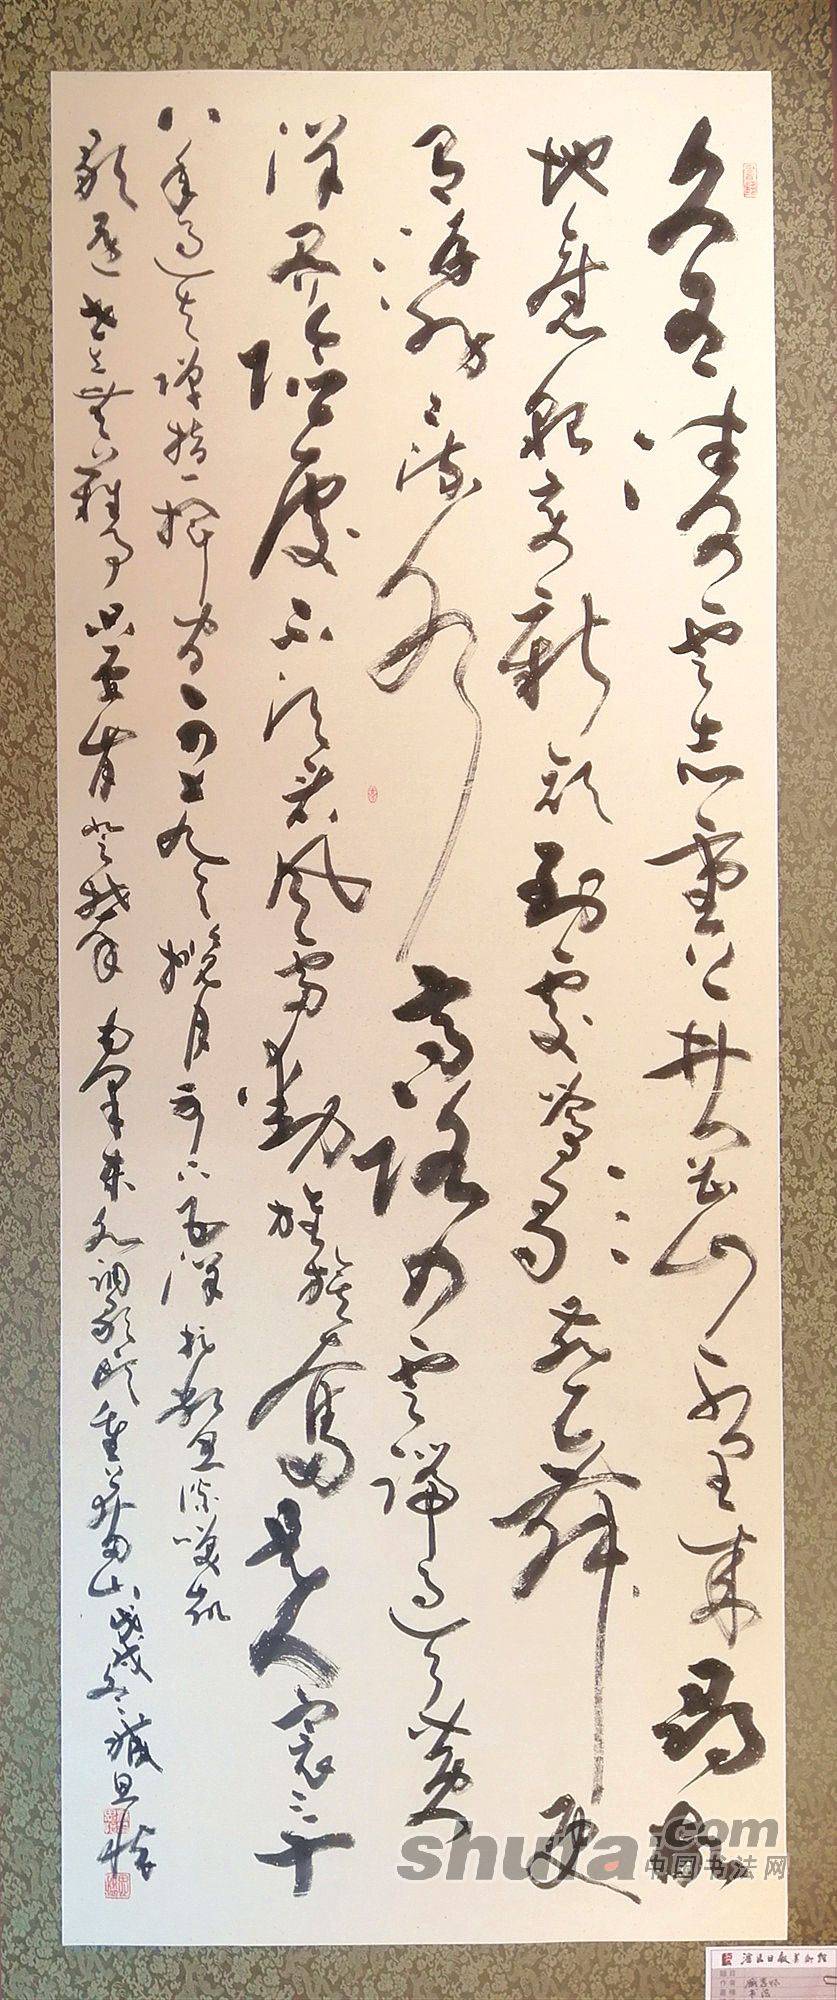 久有凌云志重上井冈山千里来尋故
地舊貌变新颜到處莺歌燕舞更
有潺潺流水高路入云端過了黄
洋界险處不须看風雷動旌旗奮是人寰三十
八年過去弹指一挥间可上九天揽月可下五洋捉鳖谈笑凯
歌還世上無難事只要肯登攀 毛泽东水调歌头重上井冈山 戊戌冬
shufa.com
中国书法网
日报美术馆
作者
书法